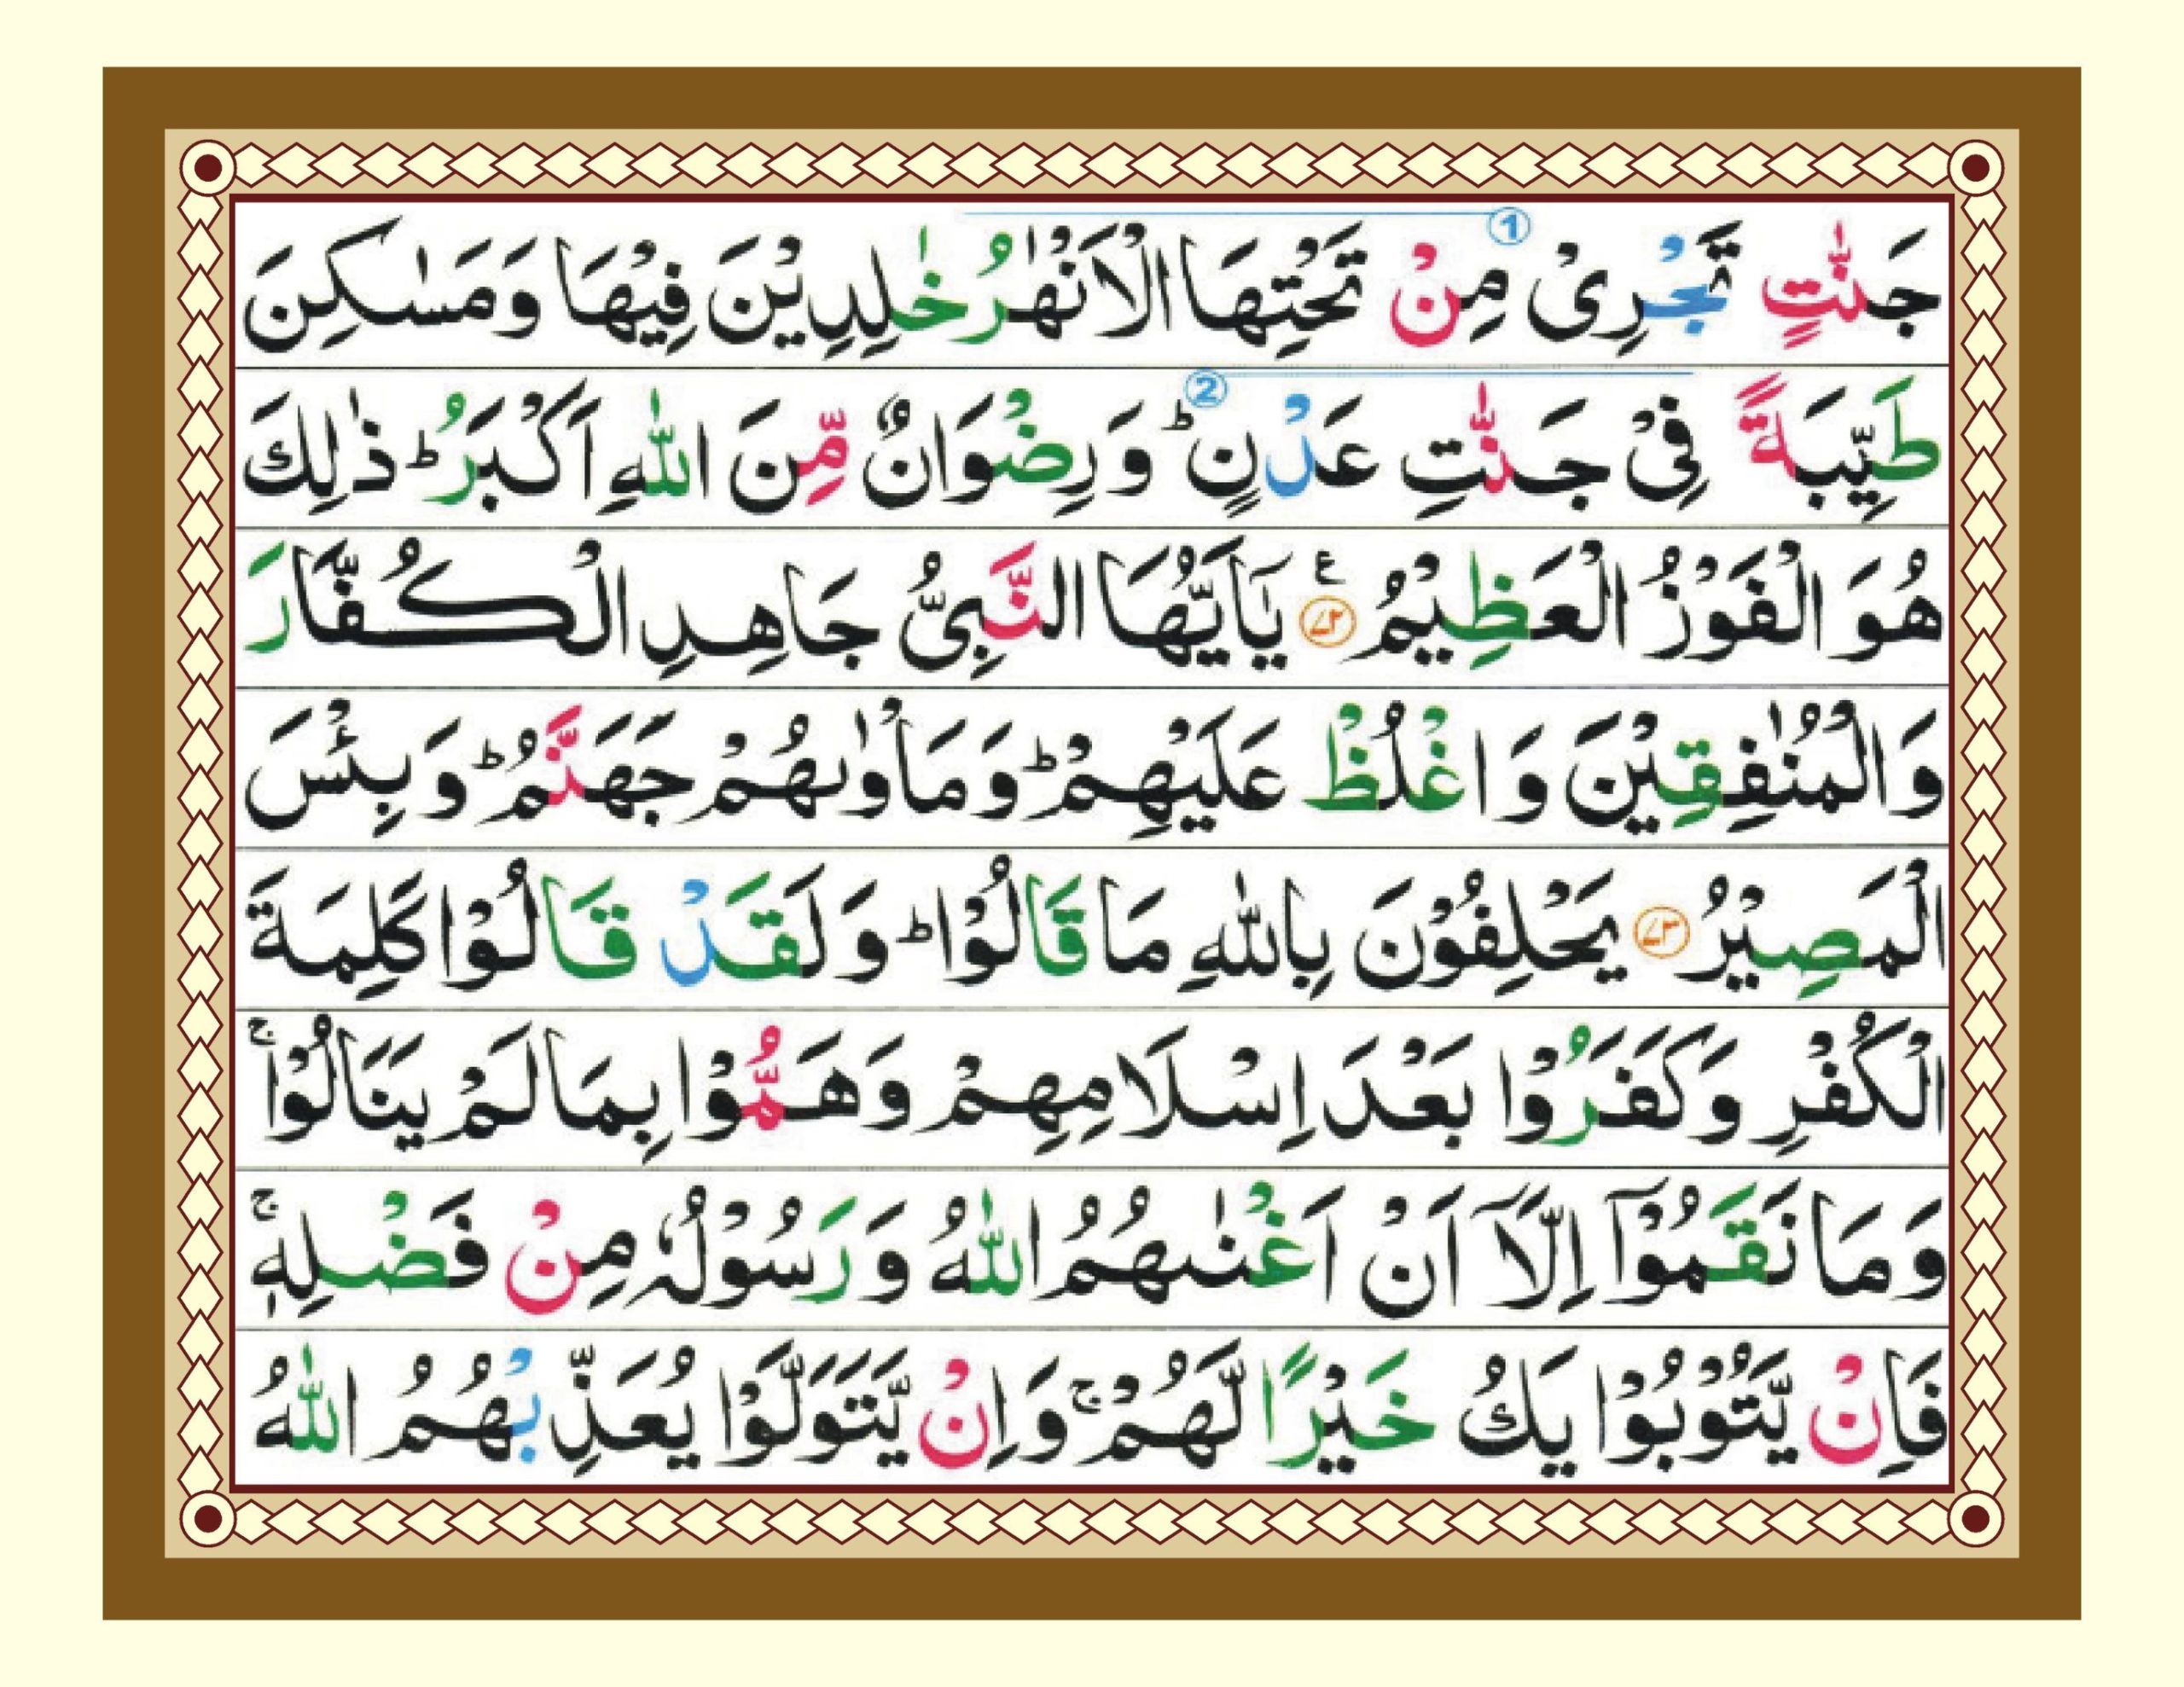 جَنّٰتٍ تَجْرِیْ مِنْ ① تَحْتِهَا الْاَنْهٰرُ خٰلِدِیْنَ فِیْهَا وَمَسٰكِنَ
طَیِّبَةً فِیْ جَنّٰتِ عَدْنٍ ② ؕ وَرِضْوَانٌ مِّنَ اللّٰهِ اَكْبَرُ ؕ ذٰلِكَ
هُوَ الْفَوْزُ الْعَظِیْمُ ۧ ﴿۷۲﴾ یٰۤاَیُّهَا النَّبِیُّ جَاهِدِ الْكُفَّارَ
وَالْمُنٰفِقِیْنَ وَاغْلُظْ عَلَیْهِمْ ؕ وَمَاْوٰىهُمْ جَهَنَّمُ ؕ وَبِئْسَ
الْمَصِیْرُ ﴿۷۳﴾ یَحْلِفُوْنَ بِاللّٰهِ مَا قَالُوْا ؕ وَلَقَدْ قَالُوْا كَلِمَةَ
الْكُفْرِ وَكَفَرُوْا بَعْدَ اِسْلَامِهِمْ وَهَمُّوْا بِمَا لَمْ یَنَالُوْا ۚ
وَمَا نَقَمُوْۤا اِلَّاۤ اَنْ اَغْنٰىهُمُ اللّٰهُ وَرَسُوْلُهٗ مِنْ فَضْلِهٖ ۚ
فَاِنْ یَّتُوْبُوْا یَكُ خَیْرًا لَّهُمْ ۚ وَاِنْ یَّتَوَلَّوْا یُعَذِّبْهُمُ اللّٰهُ